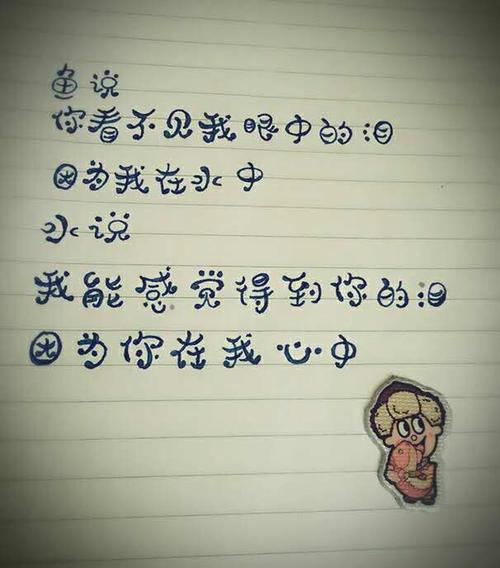 鱼说
你看不见我眼中的泪
因为我在水中
水说
我能感觉得到你的泪
因为你在我心中